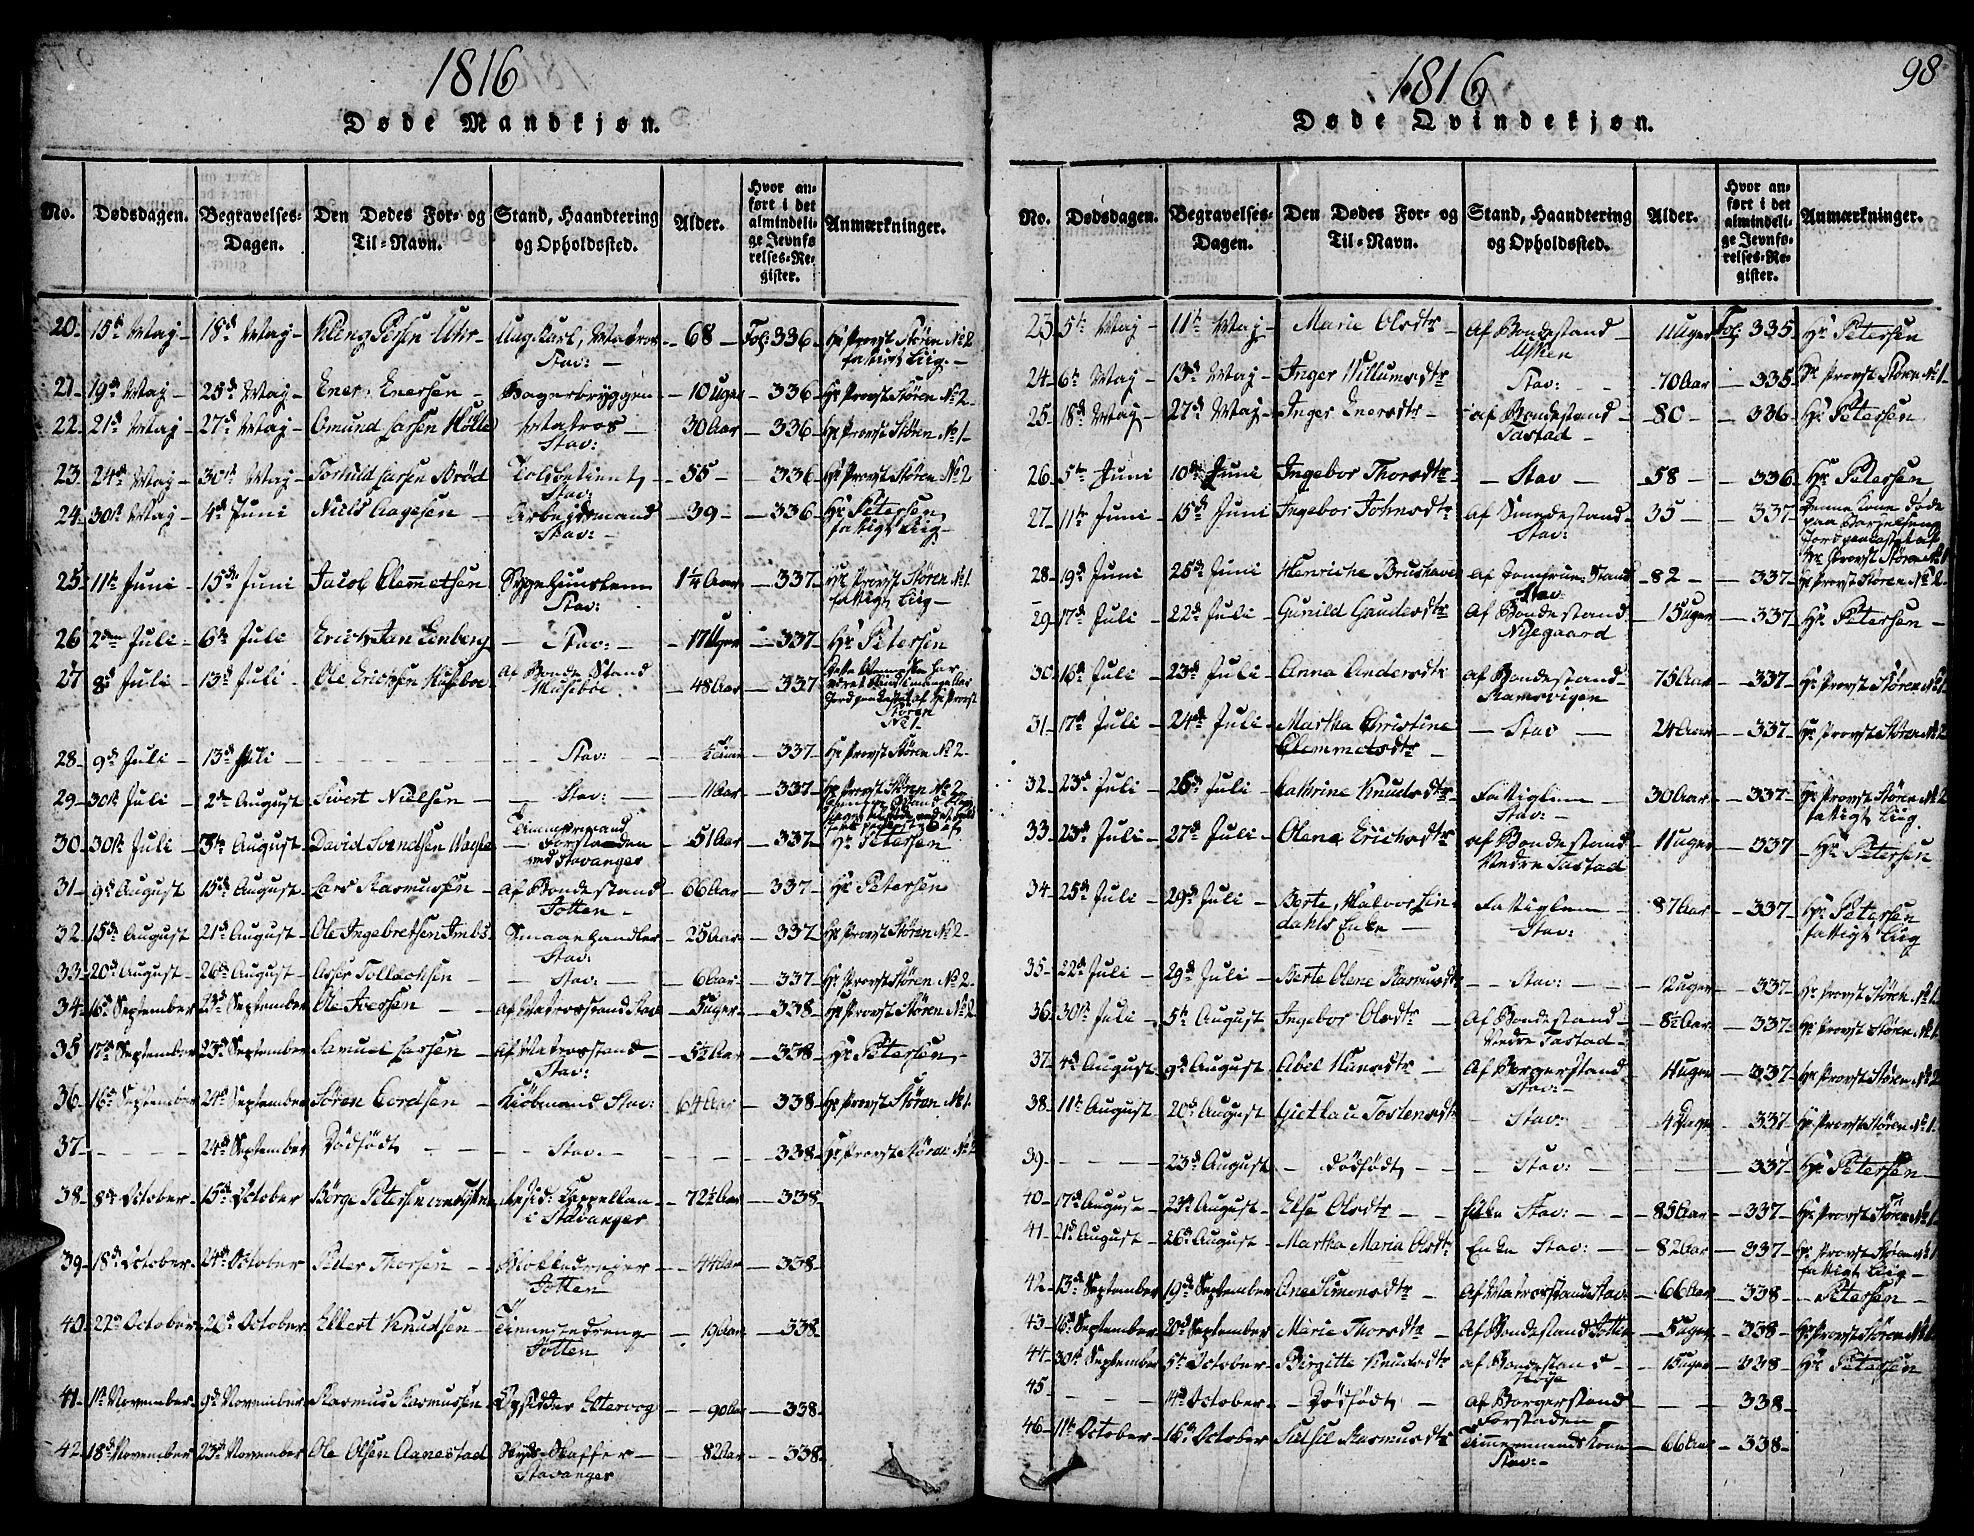 1816
Døde Mandkjøn.
No. Dødsdagen. Begravelses-Dagen. Den Dødes For- og Til-Navn. Stand, Haandtering og Opholdssted. Alder. Hvor anført i det almindelige Jevnførelses-Register. Anmærkninger.
20. 15de Maj 18de Maj Stav: 68 Fol: 336 Hr Provst Støren No 2 fattigt Liig
21. 19de Maj 25de Maj Ener Enersen 10 Uger 336 Hr Provst Støren No 2
22. 21de Maj 27de Maj Omund Larsen Matros Stav: 30 Aar 336 Hr Provst Støren No 1
23. 24de Maj 30te Maj Larsen Stav: 55 336 Hr Provst Støren No 2
24. 30te Maj 4de Juni Niels Aagesen Arbejdsmand Stav: 39 336 Hr Petersen fattigt Liig
25. 11te Juni 15de Juni Jacob Clemetsen Stav: 1¼ Aar 337 Hr Provst Støren No 1 fattigt Liig
26 2den Juli 6te Juli Erich Jan Enberg Stav: 17 Uger 337 Hr Petersen
27 8de Juli 13de Juli Ole Erichsen Husebøe Af Bonde Stand Husebøe 48 Aar 337 Jordpaakastet af Hr Provst Støren No 1
28. 9de Juli 13de Juli Stav: 337 Hr Provst Støren No 2
29. 30te Juli 2den August Sivert Nielsen Stav: 11 Aar 337 Hr Provst Støren No 2
30. 30te Juli 3die August David Svendsen Tømmermand Forstaden ved Stavanger 51 Aar 337 Hr Petersen
31. 9de August 15de August Lars Rasmussen Af Bondestand Totten 66 Aar 337 Hr Petersen
32. 15de August 21de August Ole Ingebretsen Imbs Smaaehandler Stav: 25 Aar 337 Hr Provst Støren No 2
33. 20de August 26de August Asser Tollachsen Stav: 6 Aar 337 Hr Provst Støren No 2
34. 16de September 23de September Ole Iversen af Matrosstand Stav 5 Uger 338 Hr Provst Støren No 2
35 17de September 23de September Samuel Larsen Af Matrosstand Stav: 5½ Aar 338 Hr Petersen
36. 16de September 24de September Søren Cordtsen Kiøbmand Stav: 64 Aar 338 Hr Provst Støren No 1
37. 24de September Dødfødt Stav. 338 Hr Provst Støren No 2
38. 8de October 15de October Børge Petersen resid: Cappellan i Stavanger 72½ Aar 338
39. 18de October 24de October Peder Thorsen Totten 44 Aar 338
40. 22de October 26de October Ellert Knudsen Tienestedreng Totten 19 Aar 338
41. 1te November 9de November Rasmus Rasmussen 90 Aar 338
42. 18de November 23de November Ole Olsen Aanestad Stavanger 82 Aar 338
1816 98
Døde Qvindekjøn.
No. Dødsdagen. Begravelses-Dagen. Den Dødes For- og Til-Navn. Stand, Haandtering og Opholdssted. Alder. Hvor anført i det almindelige Jevnførelses-Register. Anmærkninger.
23. 5te Maj 11te Maj Marie Olsdtr Af Bondestand 11 Uger Fol: 335 Hr Petersen
24. 6te Maj 13de Maj Inger Willumsdtr Stav: 70 Aar 335 Hr Provst Støren No 1
25. 18de Maj 27de Maj Inger Enersdtr af Bondestand Tastad 80 336 Hr Petersen
26. 5te Juni 10de Juni Ingebor Thorsdtr Stav 58 336 Hr Petersen
27. 11te Juni 15de Juni Ingebor Johnsdtr af Smedestand Stav: 35 337 Denne Kone døde paa Barselseng Jordpaakastet af Hr Provst Støren No 1
28. 19de Juni 25de Juni Henriche Brushaven af Jomfrue Stand Stav: 82 337 Hr Provst Støren No 2
29. 17de Juli 22de Juli Gunild Gaudesdtr Af Bondestand Nygaard 15 Uger 337 Hr Petersen
30. 16de Juli 23de Juli Anna Andersdtr af Bondestand Ramsvigen 75 Aar 337 Hr Provst Støren No 1
31. 17de Juli 24de Juli Martha Christine Clemmetsdtr Stav 24 Aar 337 Hr Provst Støren No 2
32. 23de Juli 26de Juli Cathrine Knudsdtr Fattiglem Stav: 30 Aar 337 Hr Provst Støren No 2 fattigt Liig
33. 23de Juli 27de Juli Olena Erichsdtr af Bondestand Nedre Tastad 11 Uger 337 Hr Petersen
34. 25de Juli 29de Juli Berte Halvor Lindahls Enke Fattiglem Stav: 87 Aar 337 Hr Petersen fattigt Liig
35. 22de Juli 29de Juli Berte Olene Rasmusdtr Stav: 12 Uger 337 Hr Provst Støren No 1
36. 30te Juli 5te August Ingebor Olsdtr Af Bondestand Nedre Tastad 8½ Aar 337 Hr Provst Støren No 1
37. 4de August 9de August Abel Hansdtr Af Borgerstand Stav: 337 Hr Provst Støren No 2
38. 11te August 20de August Tostensdtr Stav: 4 Dage 337 Hr Provst Støren No 1
39. 23de August Dødfødt Stav: 337 Hr Petersen
40. 17de August 23de August Else Olsdtr Enke Stav: 85 Aar 337 Hr Provst Støren No 1
41. 21de August 26de August Martha Maria Olsdtr Enke Stav: 82 Aar 337 Hr Provst Støren No 1 fattigt Liig
42. 13de September 19de September Ane Simonsdtr Af Matrosstand Stav: 66 Aar 338 Petersen
43. 16de September 20de September Marie Thorsdtr Af Bondestand Totten 5 Uger 338 Hr Provst Støren No 1
44. 30te September 5te October Birgitte Knudsdtr af Bondestand 15 Uger 338 Hr Petersen
45 4de October Dødfødt af Borgerstand Forstaden 338
46. 11te October 16de October Sidsel Rasmusdtr Tømmermands Kone Stav: 66 Aar 338